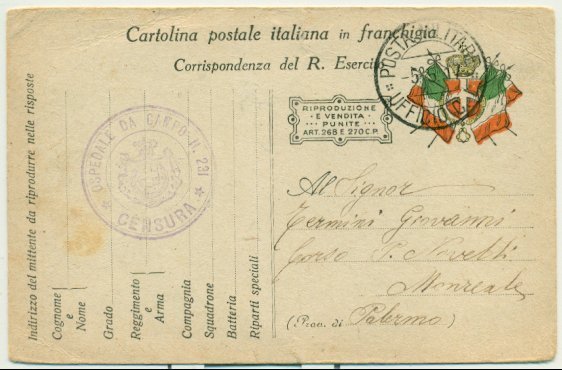 Cartolina postale italiana in franchigia
Corrispondenza del R. Esercito
POSTA MILITARE
UFFICIO
RIPRODUZIONE
E VENDITA
PUNITE
ART. 268 E 270 C.P.
OSPEDALE DA CAMPO N. 231
CENSURA
Indirizzo del mittente da riprodurre nelle risposte
Cognome
e
Nome
Grado
Reggimento
e
Arma
Compagnia
Squadrone
Batteria
Riparti speciali
Al Signor
Termini Giovanni
Corso P. Novelli
Monreale
(Prov. di Palermo)